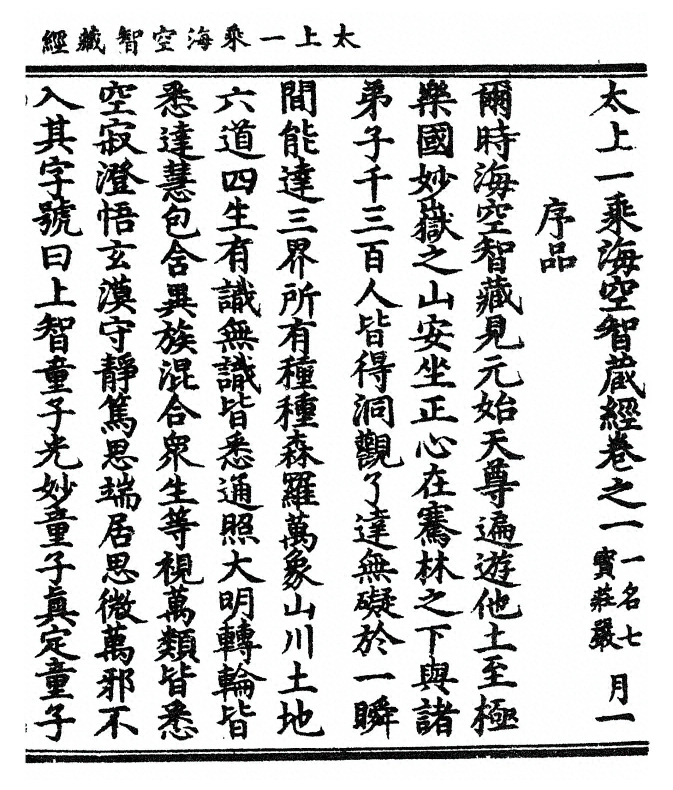 太上一乘海空智藏經
太上一乘海空智藏經卷之一
一名七
寶莊嚴
月一
序品
爾時海空智藏見元始天尊遍遊他土至極
樂國妙嶽之山安坐正心在騫林之下與諸
弟子千三百人皆得洞觀了達無礙於一瞬
間能達三界所有種種森羅萬象山川土地
六道四生有識無識皆悉通照大明轉輪皆
悉達慧包含異族混合眾生等視萬類皆悉
空寂澄悟玄漠守靜篤思端居思微萬邪不
入其字號曰上智童子光妙童子真定童子